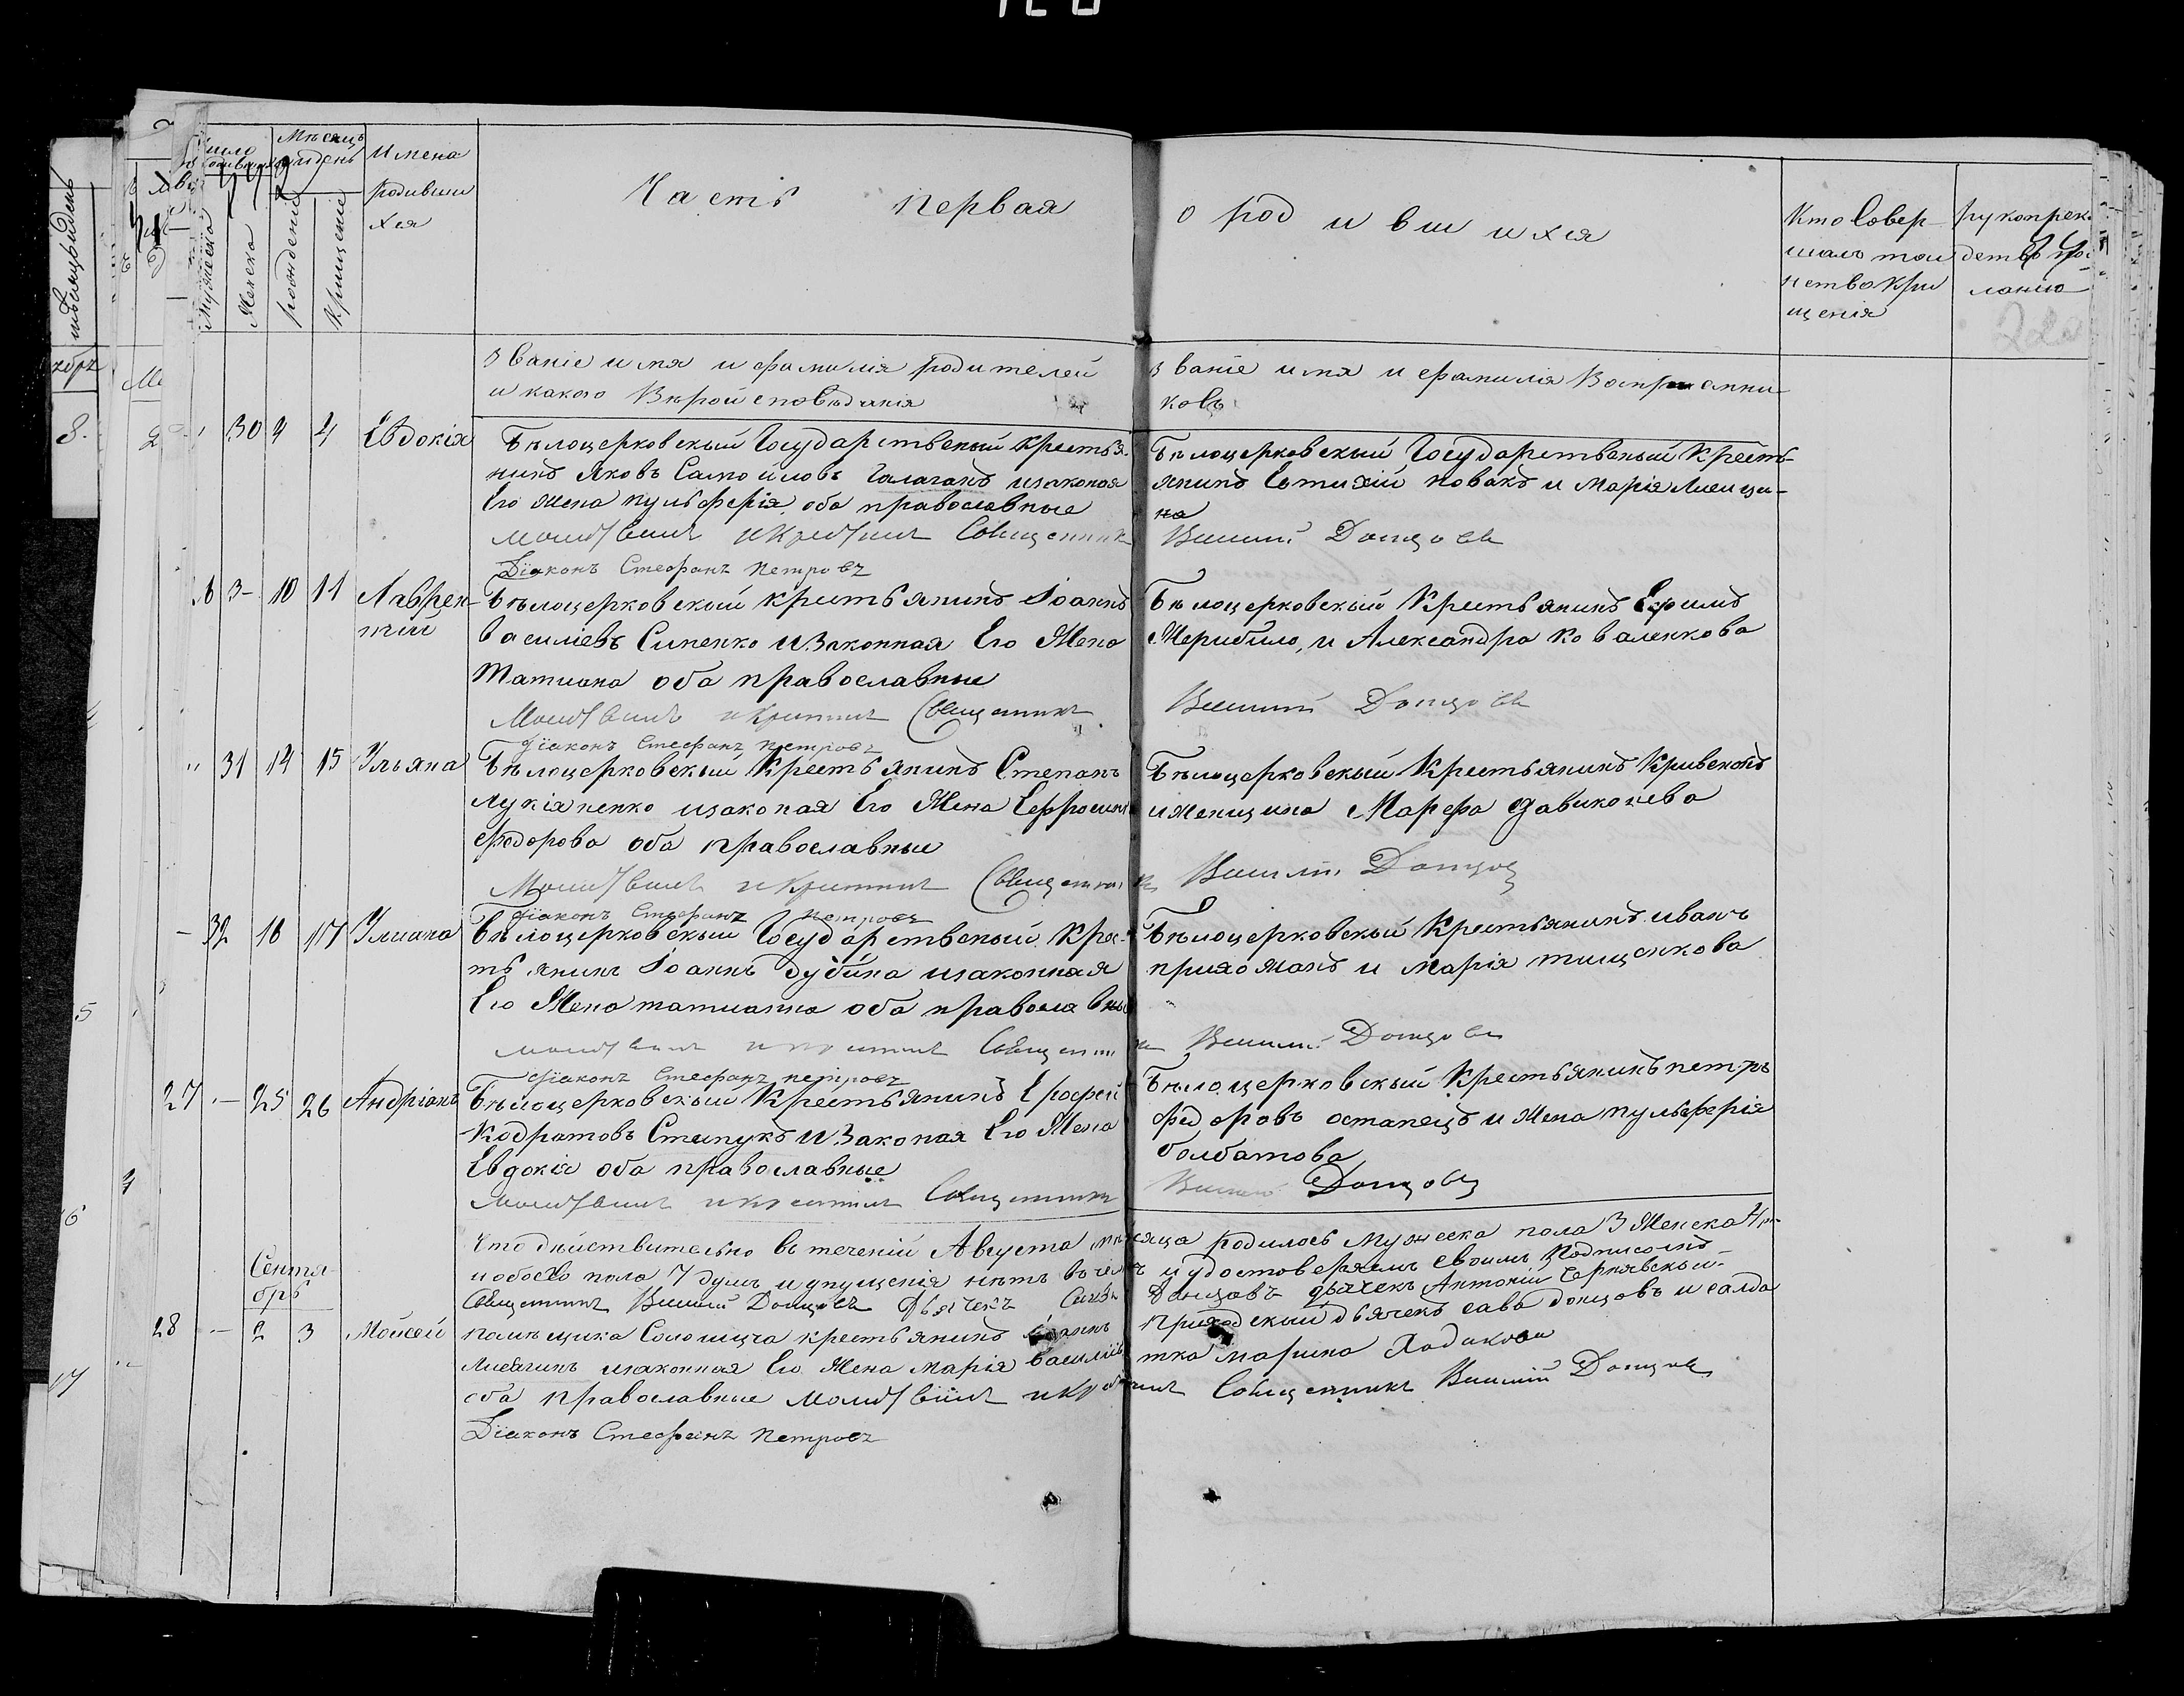 Мѣсяцъ
и день
Имена
родивши
хся
Мужеска
Женска
рождения
Крищение
Часть первая о родившихся
Кто Совер
шалъ таи
нство Кри
щения
рукоприк
детво по
ланию
звание имя и фамилия родителей
и какого Вѣройсповѣдания
звание имя и фамилия Восприемни
ковъ
30 4 4 Евдокія Бѣлоцерковский Государственый крестья-
нинъ Яковъ Самойловъ Галаганъ изаконая
Его жена пульферія оба православные
Бѣлоцерковский Государственый Кресть-
янинъ Евтихій новакъ и Марія Лисици-
на
Молитвилъ икрестилъ Священникъ Василий Донцовъ
Діаконъ Стефанъ Петровъ
26 10 11 Лаврен-
тій
Бѣлоцерковский крестьянинъ Іоаннъ
василіевъ Синенко иЗаконная Его Жена
Татиана оба православные
Бѣлоцерковский Крестьянинъ Ефимъ
Жеребило, и Александра Коваленкова
Молитвилъ икрестилъ Священникъ Василий Донцовъ
Діаконъ Стефанъ Петровъ
31 14 15 Ульяна Бѣлоцерковский Крестьянинъ Степанъ
Лукіяненко изаконая Его Жена Ефросинія
федорова оба православные
Бѣлоцерковский Крестьянинъ Кривенокъ
иженщина Марфа
Молитвилъ икрестилъ Священникъ Василий Донцовъ
Діаконъ Стефанъ Петровъ
32 16 17 Улиана Бѣлоцерковский Государственый Крес-
тьянинъ Іоаннъ Дубина изаконная
Его Жена татианна оба православны
Бѣлоцерковский Крестьянинъ иванъ
прихожанъ и Марія тищенкова
Молитвилъ икрестилъ Священникъ Василий Донцовъ
Діаконъ Стефанъ Петровъ
27 25 26 Андріанъ Бѣлоцерковский Крестьянинъ Ерофей
Кодратовъ Стипукъ иЗаконая Его Жена
Евдокія оба православные
Бѣлоцерковский Крестьянинъ петръ
федоровъ остапецъ и Жена пульферія
болбатова
Молитвилъ икрестилъ Священникъ Василий Донцовъ
Что дѣйствительно въ течении Августа мѣсяца родилось Мужеска пола 3 Женска 4
иобоего пола 7 душъ и упущенія нѣтъ въ чемъ иудостоверяемъ своимъ подписомъ
Священникъ Василий Донцовъ Дьячекъ Савва Донцовъ дьячекъ Антоній Чернявский
Сентя
брь
28 2 3 Мойсей помѣщика Соломича крестьянинъ Іоаннъ
изаконная Его Жена марія василіева
оба православные
Приходский дьячекъ сава донцовъ и салда
тка марина Ходакова
молитвилъ икрестилъ Священникъ Василий Донцовъ
Діаконъ Стефанъ Петровъ